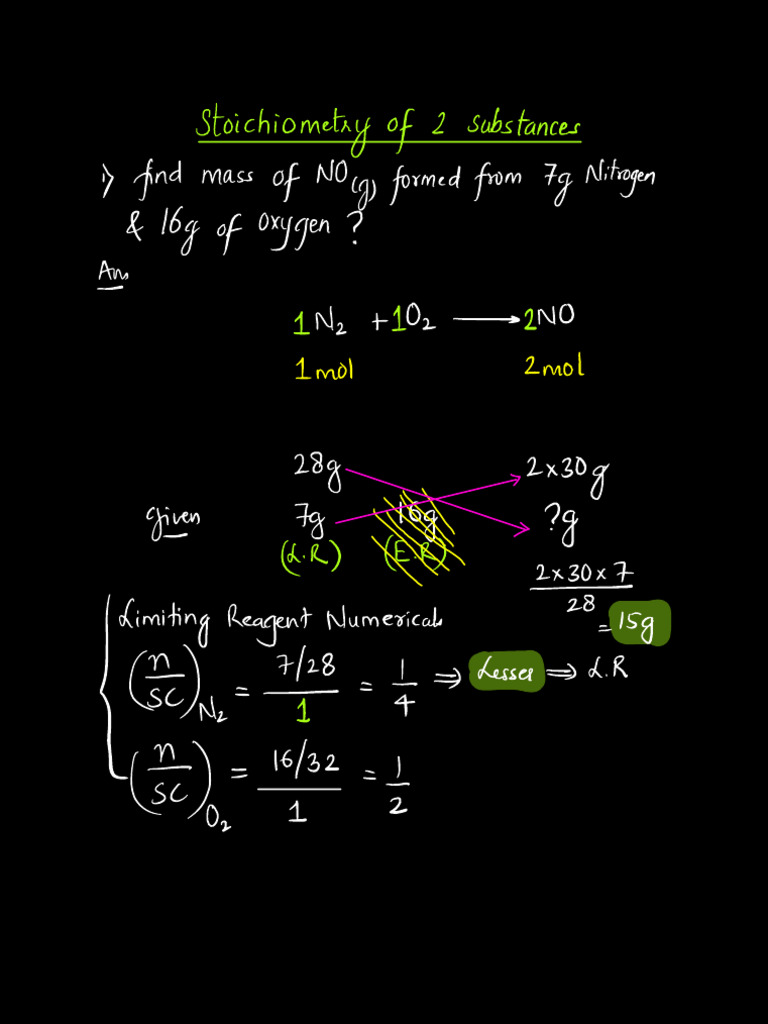 Stoichiometry of 2 substances
1) find mass of NO(g) formed from 7g Nitrogen
& 16g of oxygen ?
Ans
1N₂ + 1O₂ ⟶ 2NO
1mol 2mol
28g 2×30g
given 7g 16g ?g
(L.R) (E.R)
2×30×7/28 = 15g
Limiting Reagent Numericals
(n/sc)N₂ = 7/28/1 = 1/4 ⇒ Lesser ⇒ L.R
(n/sc)O₂ = 16/32/1 = 1/2